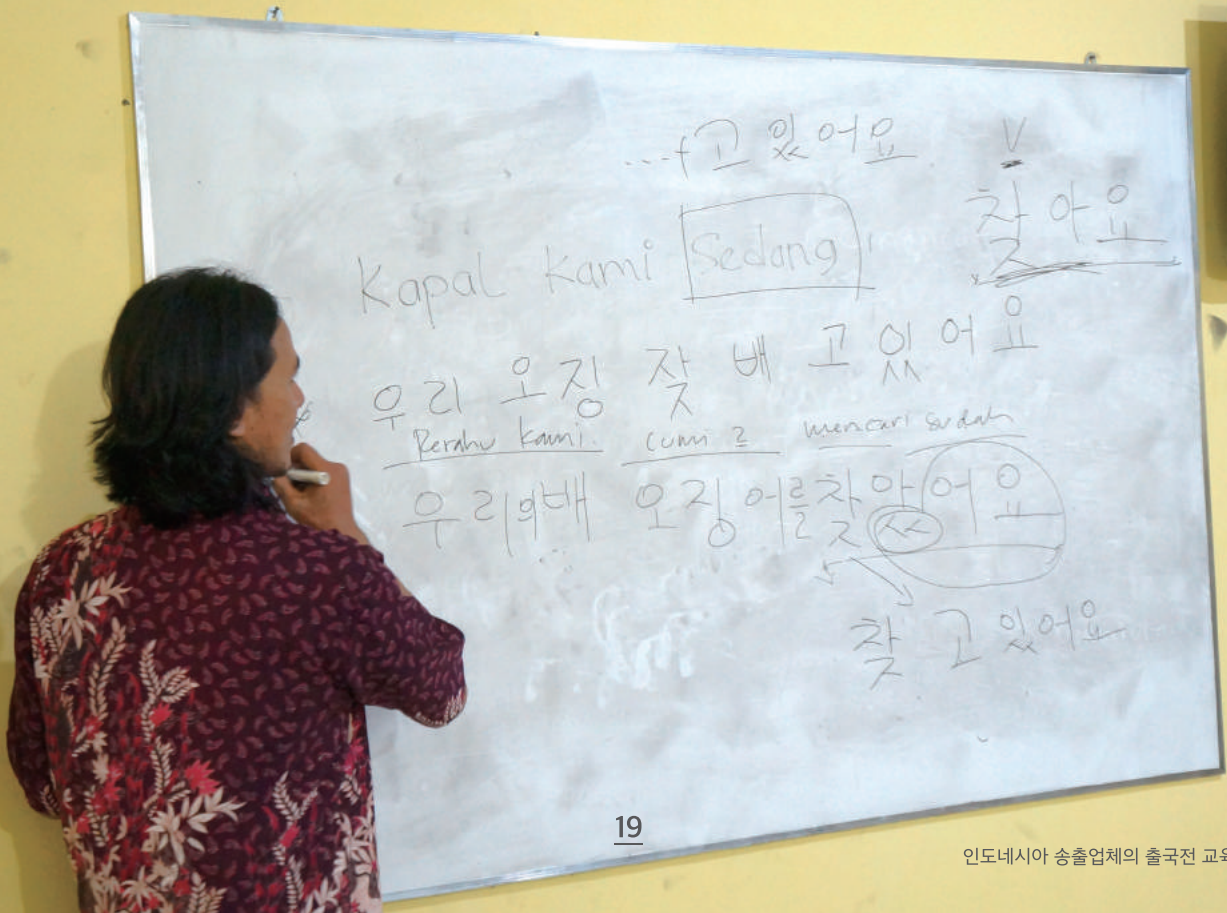 고 있어요 V
찾아요
Kapal Kami Sedang
우리 오징 잦 배 고 있어요
Perahu Kami. cumi 2 mencari sudah
우리의배 오징어를찾았어요
찾 고 있어요
19
인도네시아 송출업체의 출국전 교육